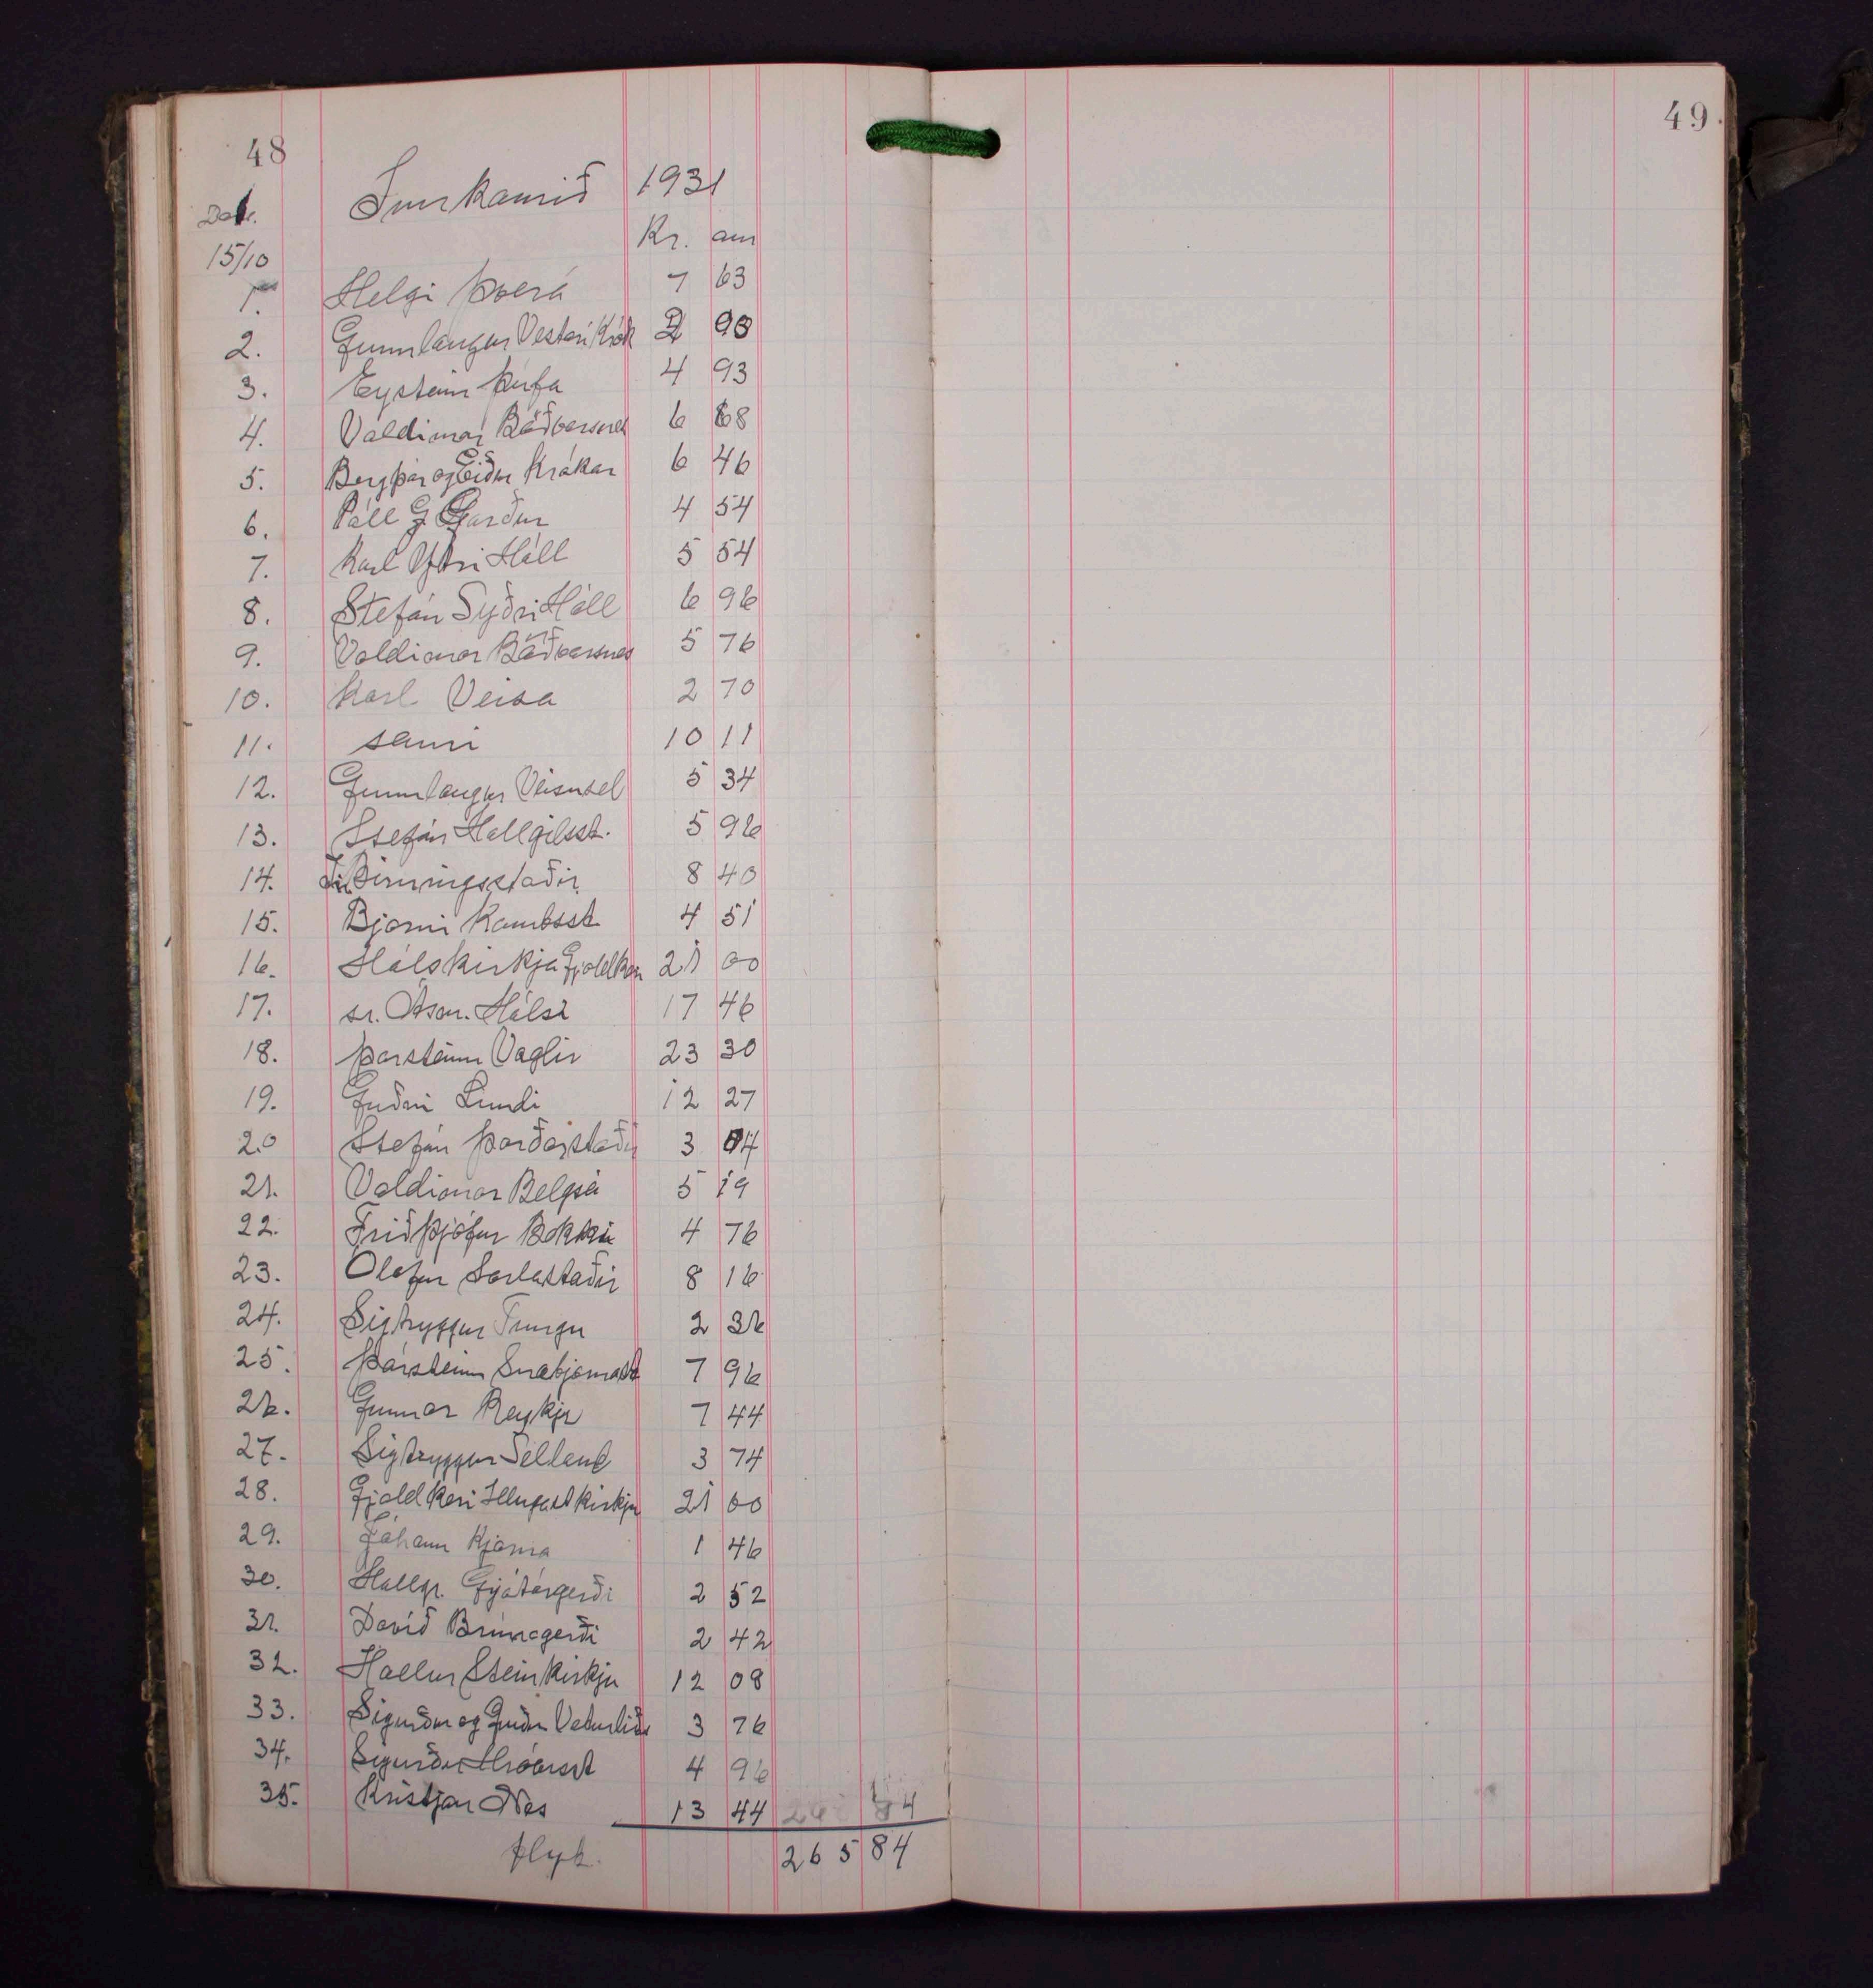 48
49
Dat.
Innkomið 1931
15/10
Kr. aur
1. Helgi Þverá 7 63
2. Gunnlaugur Vestari Krók 2 90
3. Eysteinn Þúfa 4 93
4. Valdimar Böðvarsnes 6 68
5. Bergþór og Eiður Krókar 6 46
6. Páll G Garður 4 54
7. Karl Ytri Hóll 5 54
8. Stefán Syðri Hóll 6 96
9. Valdimar Böðvarsnes 5 76
10. Karl Veisa 2 70
11. sami 10 11
12. Gunnlaugur Veisusel 5 34
13. Stefán Hallgilsst. 5 96
14. Birningsstaðir 8 40
15. Bjarni Kambsst. 4 51
16. Hálskirkja Gjaldker 21 00
17. sr. Ásm. Hálsi 17 46
18. Þorsteinn Vaglir 23 30
19. Guðni Lundi 12 27
20 Stefán Þórðarstaðir 3 04
21. Valdimar Belgsá 5 19
22. Friðþjófur Bakka 4 76
23. Ólafur Sörlastaðir 8 16
24. Sigtryggur Tungu 2 36
25. Þorsteinn Snæbjarnast 7 96
26. Gunnar Reykir 7 44
27. Sigtryggur Selland 3 74
28. Gjaldkeri Illugast kirkju 21 00
29. Jóhann Kjarna 1 46
30. Hallgr. Grjótárgerði 2 52
31. Davíð Brúnagerði 2 42
32. Hallur Steinkirkju 12 08
33. Sigurður og Guðni Veturliðs 3 76
34. Sigurður Hróarsst 4 96
35. Kristján Nes 13 44
flyt. 265 84